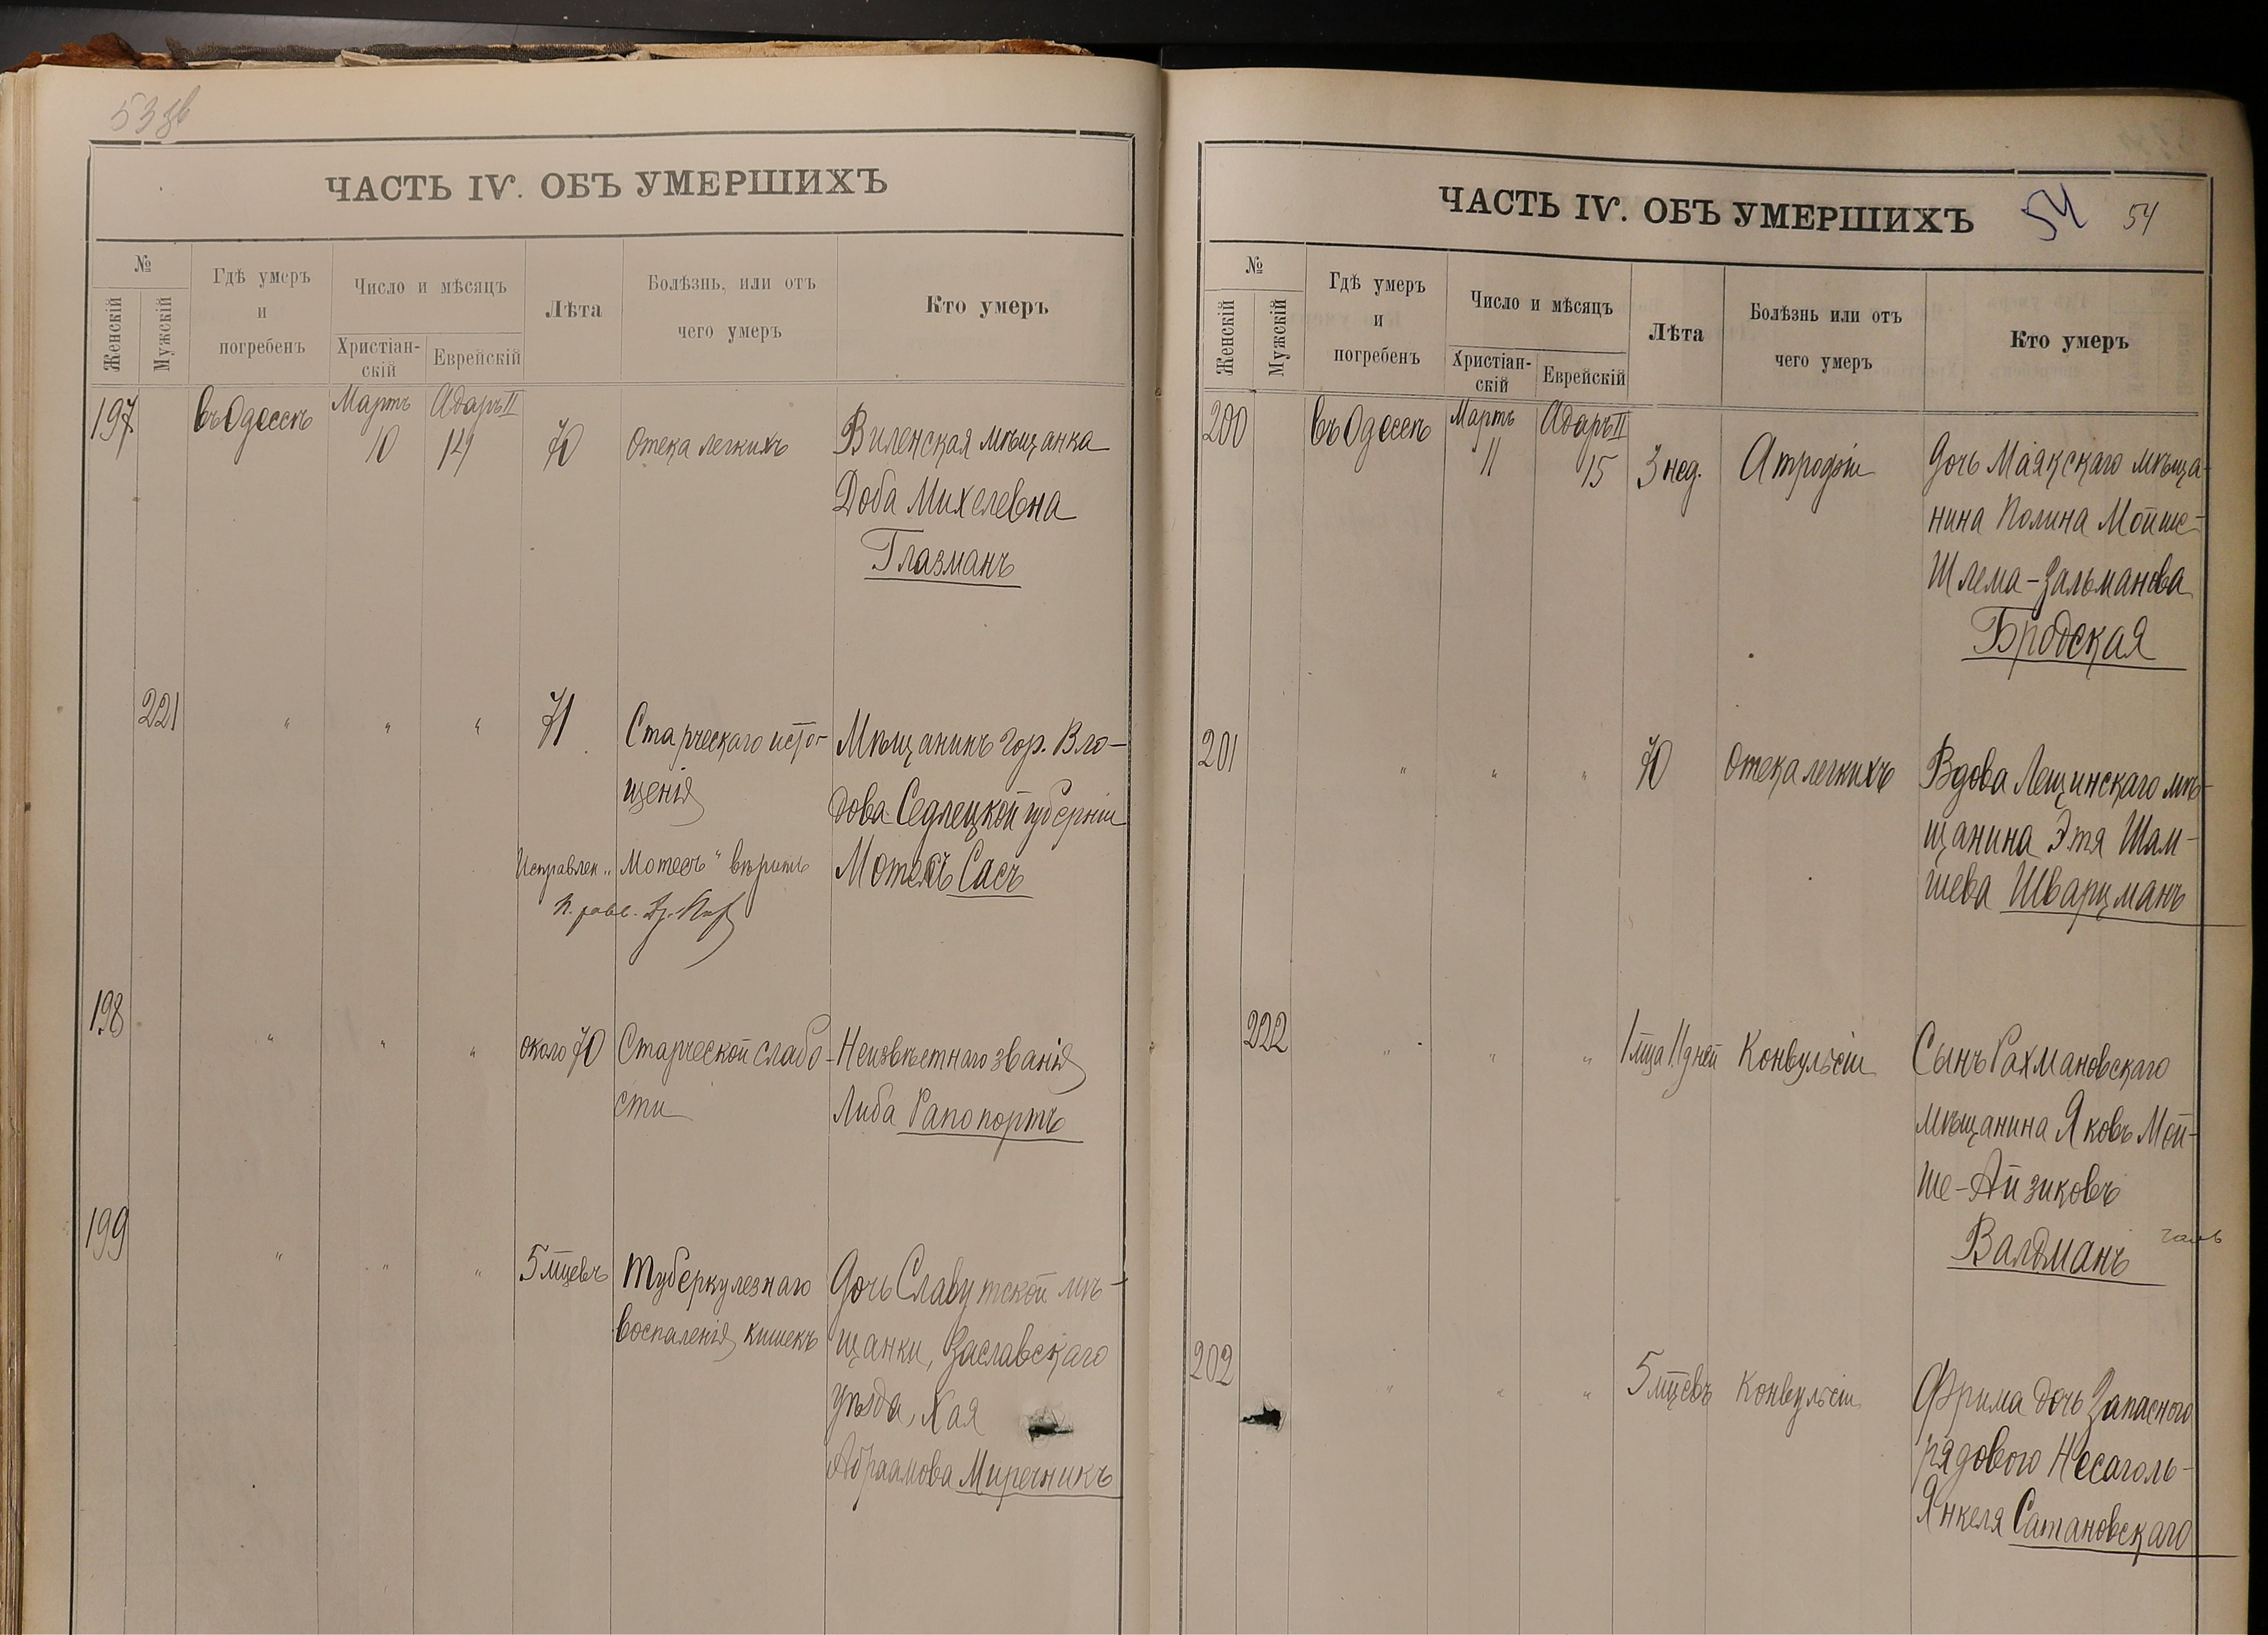 53 зв
ЧАСТЬ IV. ОБЪ УМЕРШИХЪ
№
Женскій
Мужскій
Гдѣ умеръ
и
погребенъ
Число и мѣсяцъ
Христіан-
скій
Еврейскій
Лѣта
Болѣзнь, или отъ
чего умеръ
Кто умеръ
197 въ Одессѣ Мартъ 10 Адаръ II 14 70 Отека легкихъ Виленская мѣщанка
Доба Михелевна
Глазманъ
221 " " " 71 Старческаго исто- Мѣщанинъ гор. Вло-
щенія дова Седлецкой губерніи
Исправлен. „Мотесъ" вѣрить Мотесъ Сасъ
198 " " " около 70 Старческой слабо- Неизвѣстнаго званія
сти Либа Рапопортъ
199 " " " 5 мцевъ Туберкулезнаго Дочь Славутской мѣ-
воспаленія кишекъ щанки, Заславскаго
уѣзда, Хая
Абраамова Миречникъ
ЧАСТЬ IV. ОБЪ УМЕРШИХЪ 54 54
№
Женскій
Мужскій
Гдѣ умеръ
и
погребенъ
Число и мѣсяцъ
Христіан-
скій
Еврейскій
Лѣта
Болѣзнь или отъ
чего умеръ
Кто умеръ
200 въ Одессѣ Мартъ 11 Адаръ II 15 3 нед. Атрофіи Дочь Маякскаго мѣща-
нина Полина Мойше-
Шлема-Зальманова
Бродская
201 " " " 70 Отека легкихъ Вдова Лещинскаго мѣ-
щанина Этя Шам-
шева Шварцманъ
222 " " " 1 мца 11 дней Конвульсіи Сынъ Рахмановскаго
мѣщанина Яковъ Мой-
ше-Айзиковъ
Валдманъ
202 " " " 5 мцевъ Конвульсіи Фрима дочь Запасного
рядового Несаголь-
Янкеля Сатановскаго